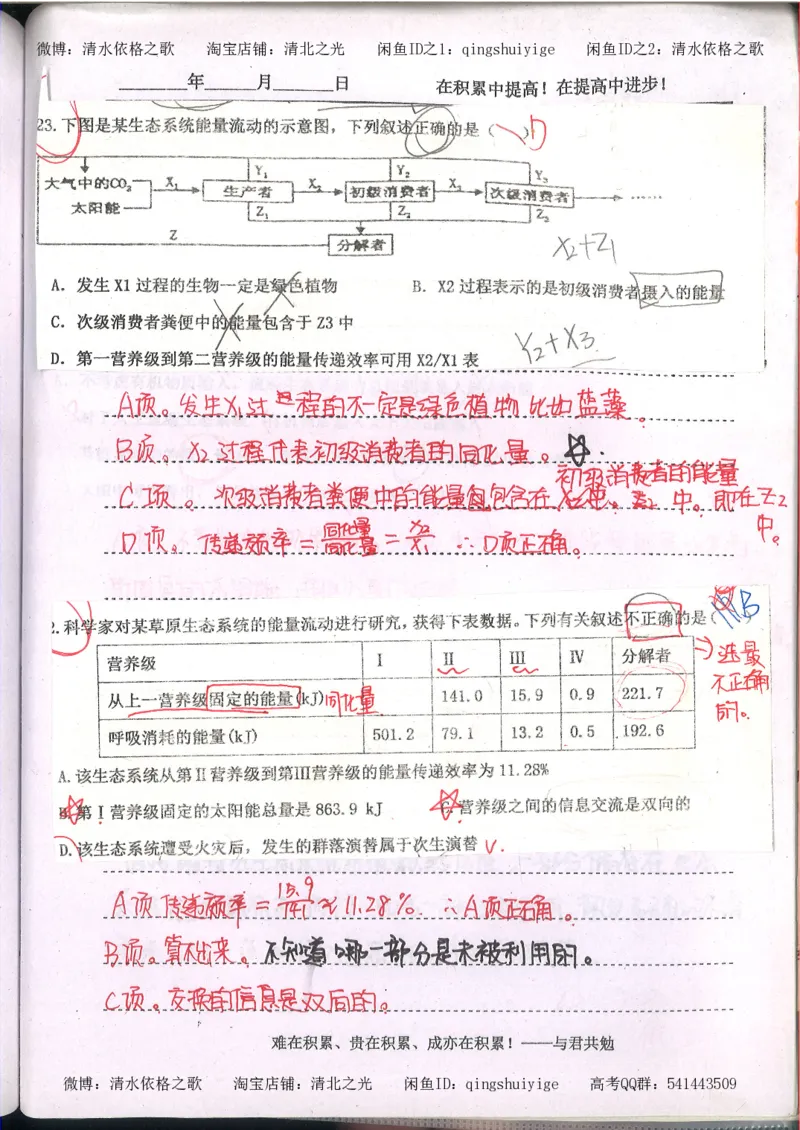 微博：清水依格之歌 淘宝店铺：清北之光 闲鱼ID之1：qingshuiyige 闲鱼ID之2：清水依格之歌
______年______月______日 在积累中提高！在提高中进步！
23.下图是某生态系统能量流动的示意图，下列叙述正确的是（ ）D
大气中的CO₂
太阳能
X₁
生产者
Y₁
Z₁
X₂
初级消费者
Y₂
Z₂
X₃
次级消费者
Y₃
Z₃
……
Z
分解者
X₂+Z₁
A．发生X1过程的生物一定是绿色植物 B．X2过程表示的是初级消费者摄入的能量
C．次级消费者粪便中的能量包含于Z3中
Y₂+X₃
D．第一营养级到第二营养级的能量传递效率可用X2/X1表
A项。发生X₁过程的不一定是绿色植物 比如蓝藻。
B项。X₂过程代表初级消费者的同化量。
初级消费者的能量
C项。次级消费者粪便中的能量包含在 中。即在Z2中。
D项。传递效率=同化量/同化量=X₂/X₁ ∴D项正确。
2.科学家对某草原生态系统的能量流动进行研究，获得下表数据。下列有关叙述不正确的是（ B
→选最不正确的。
营养级 Ⅰ Ⅱ Ⅲ Ⅳ 分解者
从上一营养级固定的能量(kJ) 同化量 141.0 15.9 0.9 221.7
呼吸消耗的能量(kJ) 501.2 79.1 13.2 0.5 192.6
A.该生态系统从第Ⅱ营养级到第Ⅲ营养级的能量传递效率为11.28%
B.第Ⅰ营养级固定的太阳能总量是863.9 kJ C.营养级之间的信息交流是双向的
D.该生态系统遭受火灾后，发生的群落演替属于次生演替 √.
A项 传递效率=15.9/141≈11.28% ∴A项正确。
B项。算不出来。不知道哪一部分是未被利用的。
C项。交换的信息是双向的。
难在积累、贵在积累、成亦在积累！——与君共勉
微博：清水依格之歌 淘宝店铺：清北之光 闲鱼ID：qingshuiyige 高考QQ群：541443509